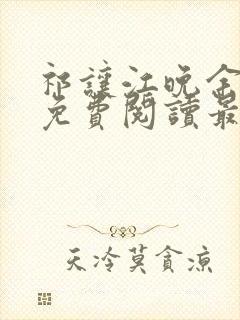 祁讓江晚全
免費閱讀最
天冷莫貪涼